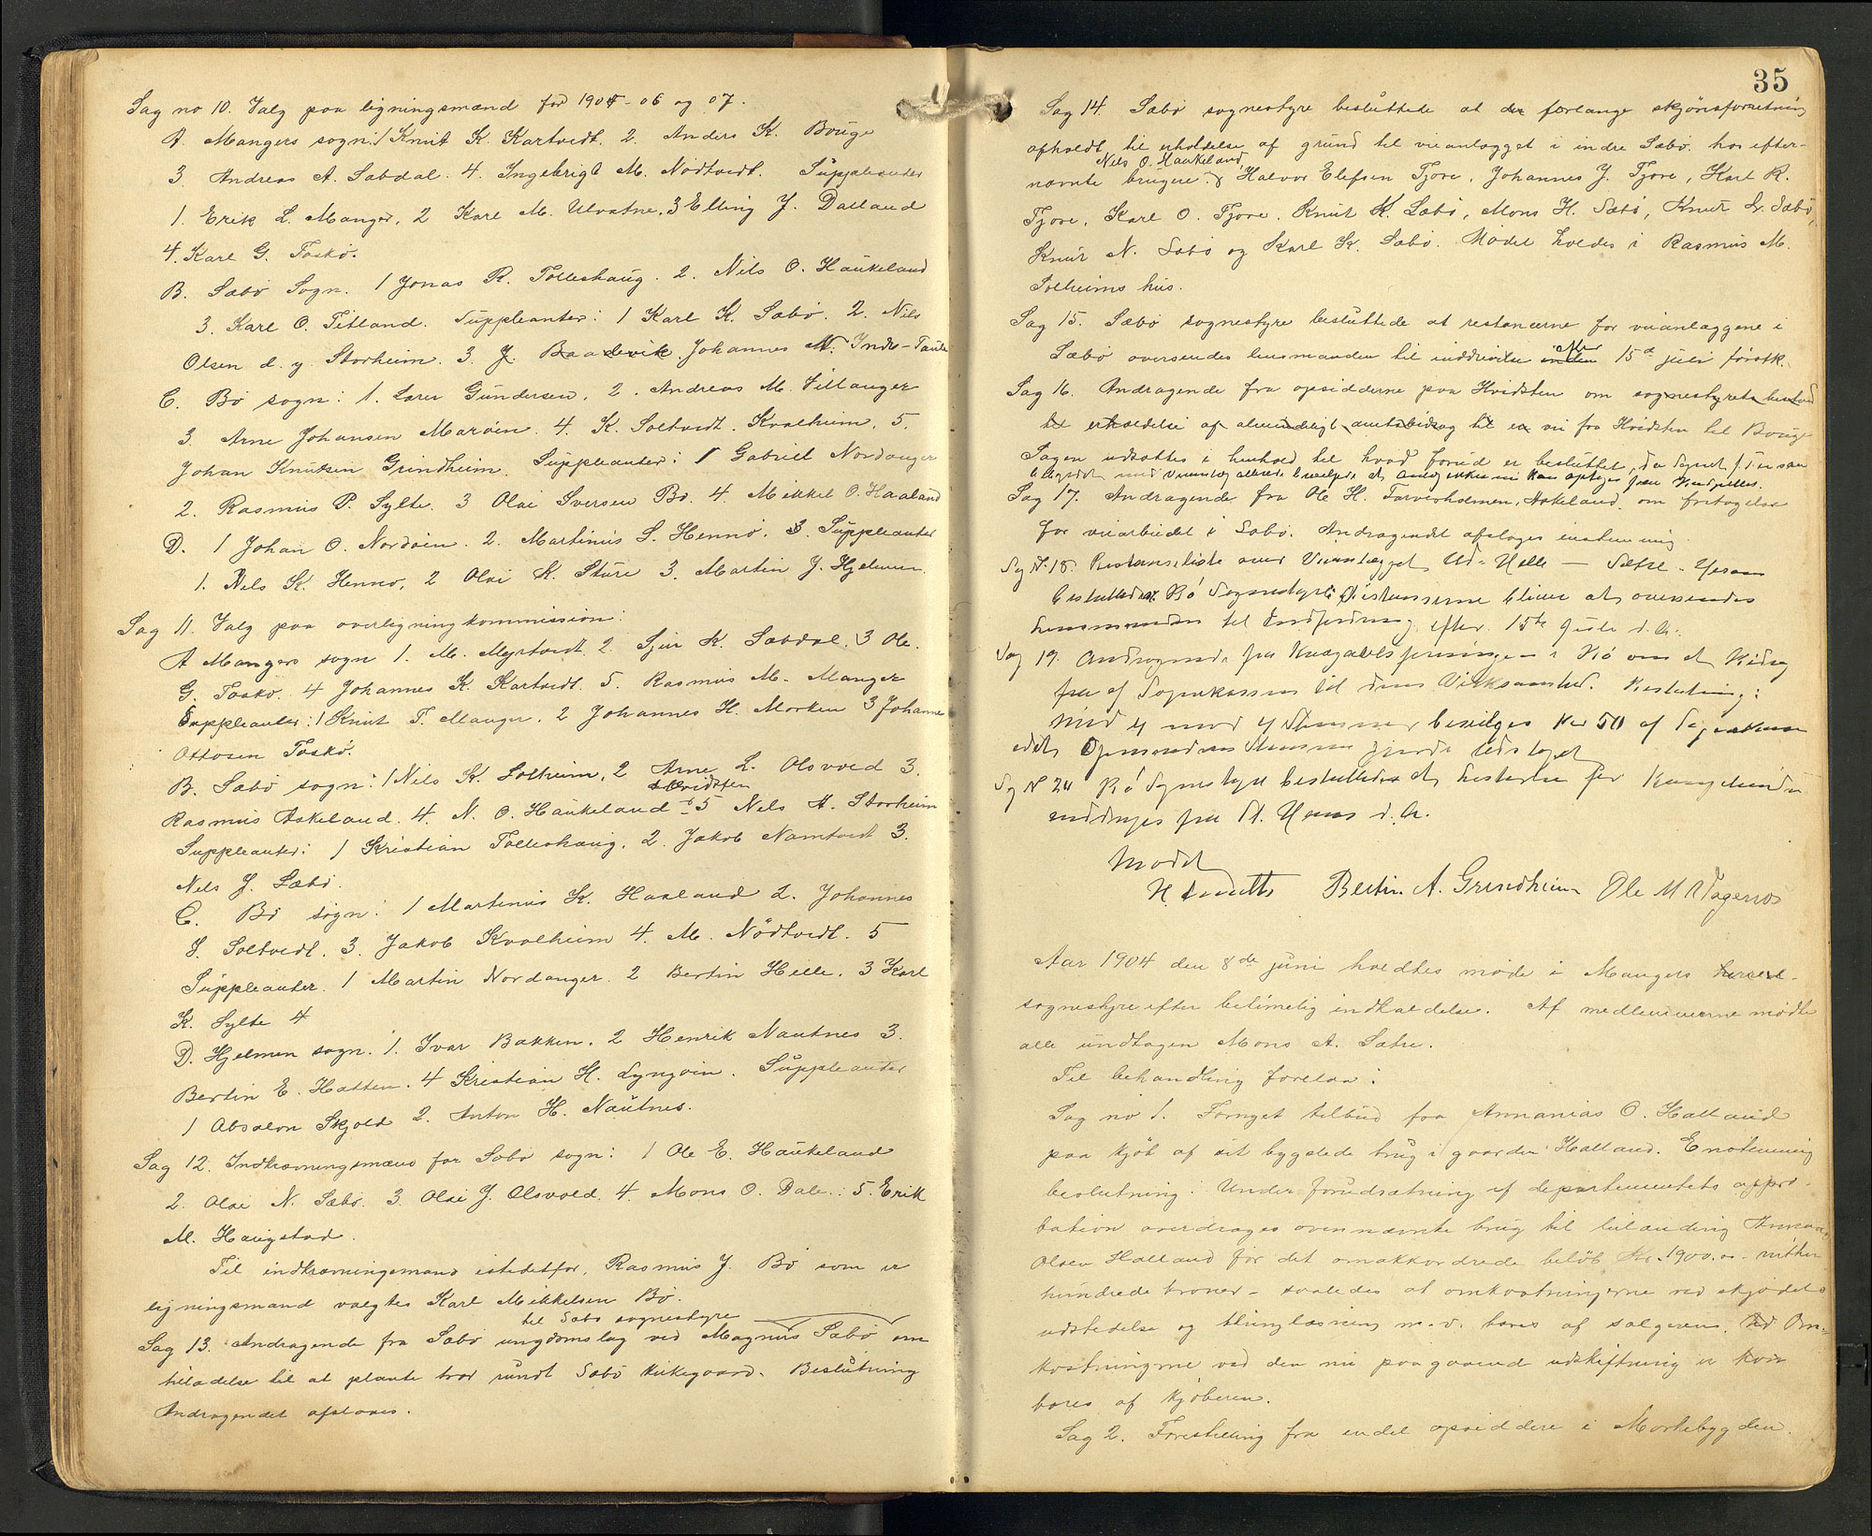 Sag no 10. Valg paa ligningsmænd for 1905-06 og 07.
A. Mangers sogn: 1 Knut K. Kartveidt. 2. Anders K. Bouge
3. Andreas A. Sæbdal. 4. Ingebrigt M. Nödtvedt. Suppleanter
1. Erik L. Manger, 2 Karl M. Ulvatne, 3 Elling J. Dalland
4. Karl G. Toskö.
B. Sæbö Sogn. 1 Jonas R. Tolleshaug. 2. Nils O. Haukeland
3. Karl O. Titland. Suppleanter: 1 Karl K. Sæbö. 2. Nils
Olsen d. y. Storheim. 3. J. Johannes N. Indre-Taule
C. Bö sogn: 1. Lars Gundersen, 2. Andreas M. Sillanger
3. Arne Johansen Maröen. 4. K. Soltvedt. Kvalheim, 5.
Johan Knutsen Grindheim. Suppleanter: 1 Gabriel Nordanger
2. Rasmus P. Sylte. 3 Olai Iversen Bö. 4. Mikkel O. Haaland
D. 1 Johan O. Nordöen. 2. Martinus S. Hennö. 3. Suppleanter
1. Nils K. Hennö, 2 Olai K. Sture 3. Martin J. Hjelmen.
Sag 11. Valg paa overligningkommission:
A Mangers sogn 1. M. Myrtvedt. 2. Sjur K. Sæbdal. 3 Ole
G. Toskö. 4 Johannes K. Kartveidt. 5. Rasmus M. Manger
Suppleanter: 1 Knut T. Manger. 2 Johannes H. Morken 3 Johannes
Ottosen Toskö.
B. Sæbö sogn: 1 Nils K. Solheim, 2 Arne L. Olsvold 3.
Hvidsten
Rasmus Askeland. 4. N. O. Haukeland 5 Nels A. Storheim
Suppleanter: 1 Kristian Tolleshaug. 2. Jakob Namtvedt 3.
Nels J. Sæbö.
C. Bö sogn: 1 Martinus K. Haaland 2. Johannes
S. Soltvedt. 3. Jakob Kvalheim 4. M. Nödtvedt. 5
Suppleanter. 1 Martin Nordanger. 2 Bertin Helle. 3 Karl
K. Sylte 4
D. Hjelmen sogn. 1. Ivar Bakken. 2 Henrik Nautnes 3.
Bertin E. Hatten. 4 Kristian H. Lyngöen. Suppleanter
1 Absalon Skjold 2. Anton H. Nautnes.
Sag 12. Indkrævningsmænd for Sæbö sogn: 1 Ole E. Haukeland
2. Olai N. Sæbö. 3. Olai J. Olsvold. 4. Mons O. Dale. 5. Erik
M. Haugstad.
Til indkrævningsmand istedetfor, Rasmus J. Bö som er
ligningsmand valgtes Karl Mikkelsen Bö.
til Sæbö sognestyre
Sag 13. Andragende fra Sæbö ungdomslag ved Magnus Sæbö om
tiladelse til at plante trær rundt Sæbö kirkegaard. Beslutning
Andragendet afslaaes.
35
Sag 14. Sæbö sognestyre besluttede at forlange skjönsforretning
afholdt til erholdelse af grund til veianlægget i indre Sæbö hos efter-
Nils O. Haukeland
nævnte brugere: Halvor Elefsen Fjore, Johannes J. Fjore, Karl R.
Fjore, Karl O. Fjore. Knut K. Sæbö, Mons H. Sæbö, Knut L. Sæbö,
Knut N. Sæbö og Karl K. Sæbö. Mödet holdes i Rasmus M.
Solheims hus.
Sag 15. Sæbö sognestyre besluttede at restancerne for veianlæggene i
efter
Sæbö oversendes lensmanden til inddrivelse inden 15de juli förstk.
Sag 16. Andragende fra opsidderne paa Hvidsten om sognestyrets bistand
til erholdelse af almindeligt amtsbidrag til en vei fra Hvidsten til Bouge
Sagen udsættes i henhold til hvad forud er besluttet,
Sag 17. Andragende fra Ole H. Askeland, om fritagelse
for veiarbeidet i Sæbö. Andragendet afslages enstemmig.
Sag N: 18. Restanseliste over Veianlægget Ud-Helle — Sætre.
besluttede Bö Sognestyre Restanserne bliver at oversendes
Lensmanden til Inddrivning efter 15de Juli d. A.
Sag 19. Andragende fra i Bö om et Bidrag
fra af Sognekassen til dens Virksomhed. Beslutning:
Med 4 mod 4 Stemmer bevilges Kr 50 af Sognekassen
idet Opmandens Stemme gjorde Udslaget
Sag N 20 Bö Sognestyre besluttede at
fra St. Hans d. A.
Mödet
Bertin. A. Grindheim Ole M
Aar 1904 den 8de juni holdtes möde i Mangers herred-
sognestyre efter betimelig indkaldelse. Af medlemmerne mödte
alle undtagen Mons A. Sætre.
Til behandling forelaa:
Sag no 1. Fornyet tilbud fra Annanias O. Halland
paa kjöb af sit bygslede brug i gaarden Halland. Enstemmig
beslutning: Under forudsætning af departementets appro-
bation overdrages ovennævnte brug til leilænding Annanias
Olsen Halland for det omakkordrede belöb Kr. 1900.00 - nitten
hundrede kroner - saaledes at omkostningerne ved skjödets
udstedelse og thinglæsning m.v. bæres af sælgeren. Om-
kostningerne ved den nu paagaaende udskiftning
bæres af kjöberen.
Sag 2. Forestilling fra endel opsiddere i Morkebygden.